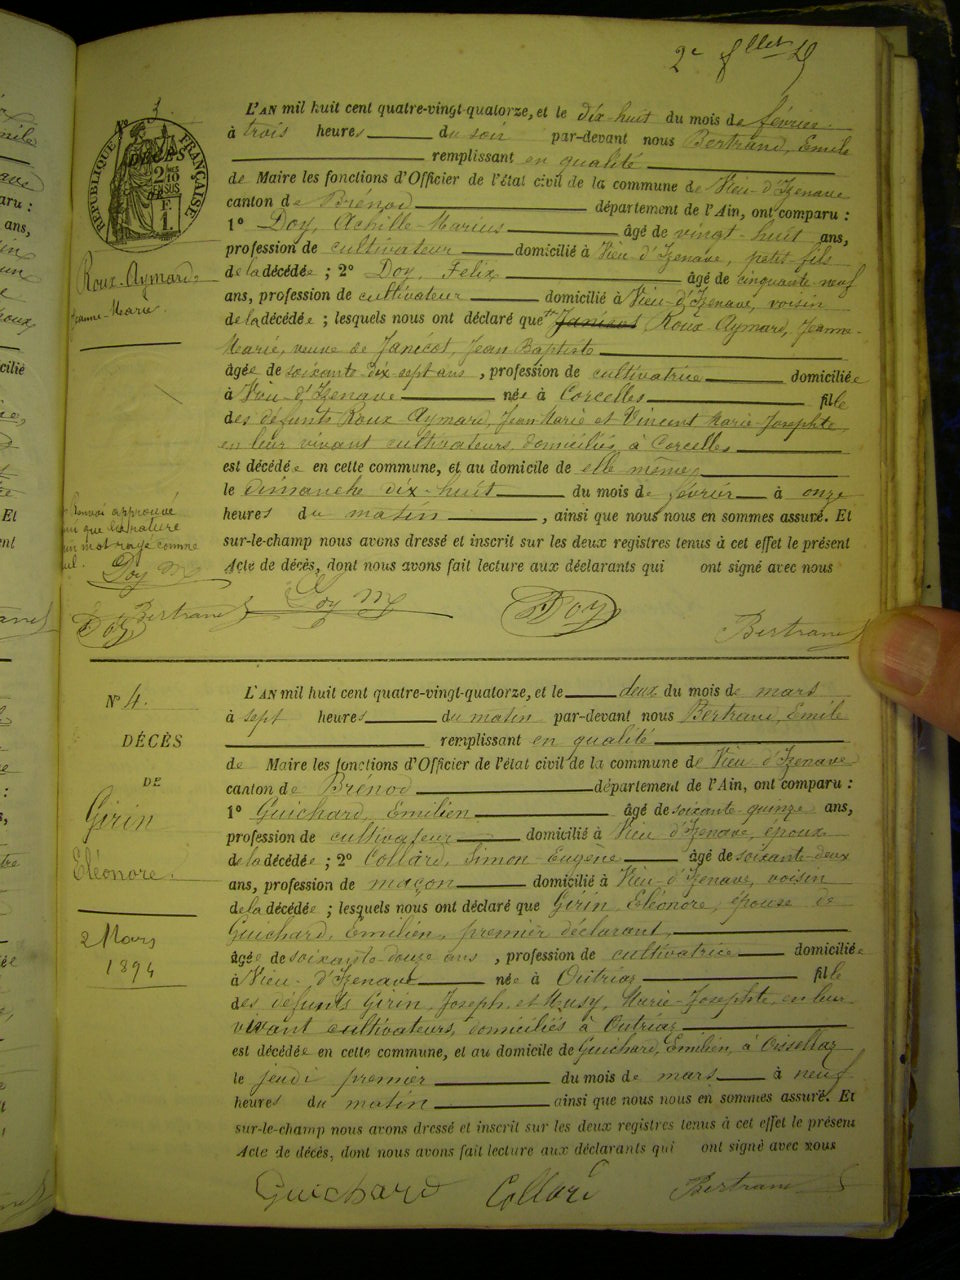 2e
L'AN mil huit cent quatre-vingt-quatorze, et le dix-huit du mois de février
à trois heures du soir par-devant nous Bertrand, Emile
remplissant en qualité
de Maire les fonctions d'Officier de l'état civil de la commune de Vieu-d'Izenave
canton de Brénod département de l'Ain, ont comparu :
1° Doy, Achille-Marius âgé de vingt-huit ans,
profession de cultivateur domicilié à Vieu-d'Izenave, petit-fils
de la décédée ; 2° Doy, Félix âgé de cinquante-neuf
ans, profession de cultivateur domicilié à Vieu-d'Izenave, voisin
de la décédée ; lesquels nous ont déclaré que Janicot Roux-Aymard, Jeanne-
Marie, veuve de Janicot, Jean Baptiste
âgée de soixante dix sept ans, profession de cultivatrice domiciliée
à Vieu-d'Izenave née à Corcelles fille
des défunts Roux Aymard, Jean Marie et Vincent Marie-Josephte,
en leur vivant cultivateurs, domiciliés à Corcelles
est décédée en cette commune, et au domicile de elle même,
le dimanche dix-huit du mois de février à onze
heures du matin , ainsi que nous nous en sommes assuré. Et
sur-le-champ nous avons dressé et inscrit sur les deux registres tenus à cet effet le présent
Acte de décès, dont nous avons fait lecture aux déclarants qui ont signé avec nous
RÉPUBLIQUE FRANÇAISE
DÉCÈS
2/10
EN SUS
F.
1.
Roux-Aymard
Jeanne-Marie
Renvoi approuvé
ainsi que la rature
un mot rayé comme
nul.
Doy M
Doy Bertrand
Doy M
Doy
Bertrand
N° 4.
DÉCÈS
DE
Girin
Eléonore.
2 Mars
1894
L'AN mil huit cent quatre-vingt-quatorze, et le deux du mois de mars
à sept heures du matin par-devant nous Bertrand, Emile
remplissant en qualité
de Maire les fonctions d'Officier de l'état civil de la commune de Vieu d'Izenave
canton de Brénod département de l'Ain, ont comparu :
1° Guichard, Emilien âgé de soixante-quinze ans,
profession de cultivateur domicilié à Vieu d'Izenave, époux
de la décédée ; 2° Collard, Simon-Eugène âgé de soixante-deux
ans, profession de maçon domicilié à Vieu-d'Izenave, voisin
de la décédée ; lesquels nous ont déclaré que Girin Eléonore, épouse de
Guichard, Emilien, premier déclarant,
âgée de soixante-douze ans, profession de cultivatrice domiciliée
à Vieu-d'Izenave née à Outriaz fille
des défunts Girin, Joseph et Musy, Marie-Josephte, en leur
vivant cultivateurs, domiciliés à Outriaz
est décédée en cette commune, et au domicile de Guichard, Emilien, à Oissellaz
le jeudi premier du mois de mars à neuf
heures du matin ainsi que nous nous en sommes assuré. Et
sur-le-champ nous avons dressé et inscrit sur les deux registres tenus à cet effet le présent
Acte de décès, dont nous avons fait lecture aux déclarants qui ont signé avec nous
Guichard Collard Bertrand